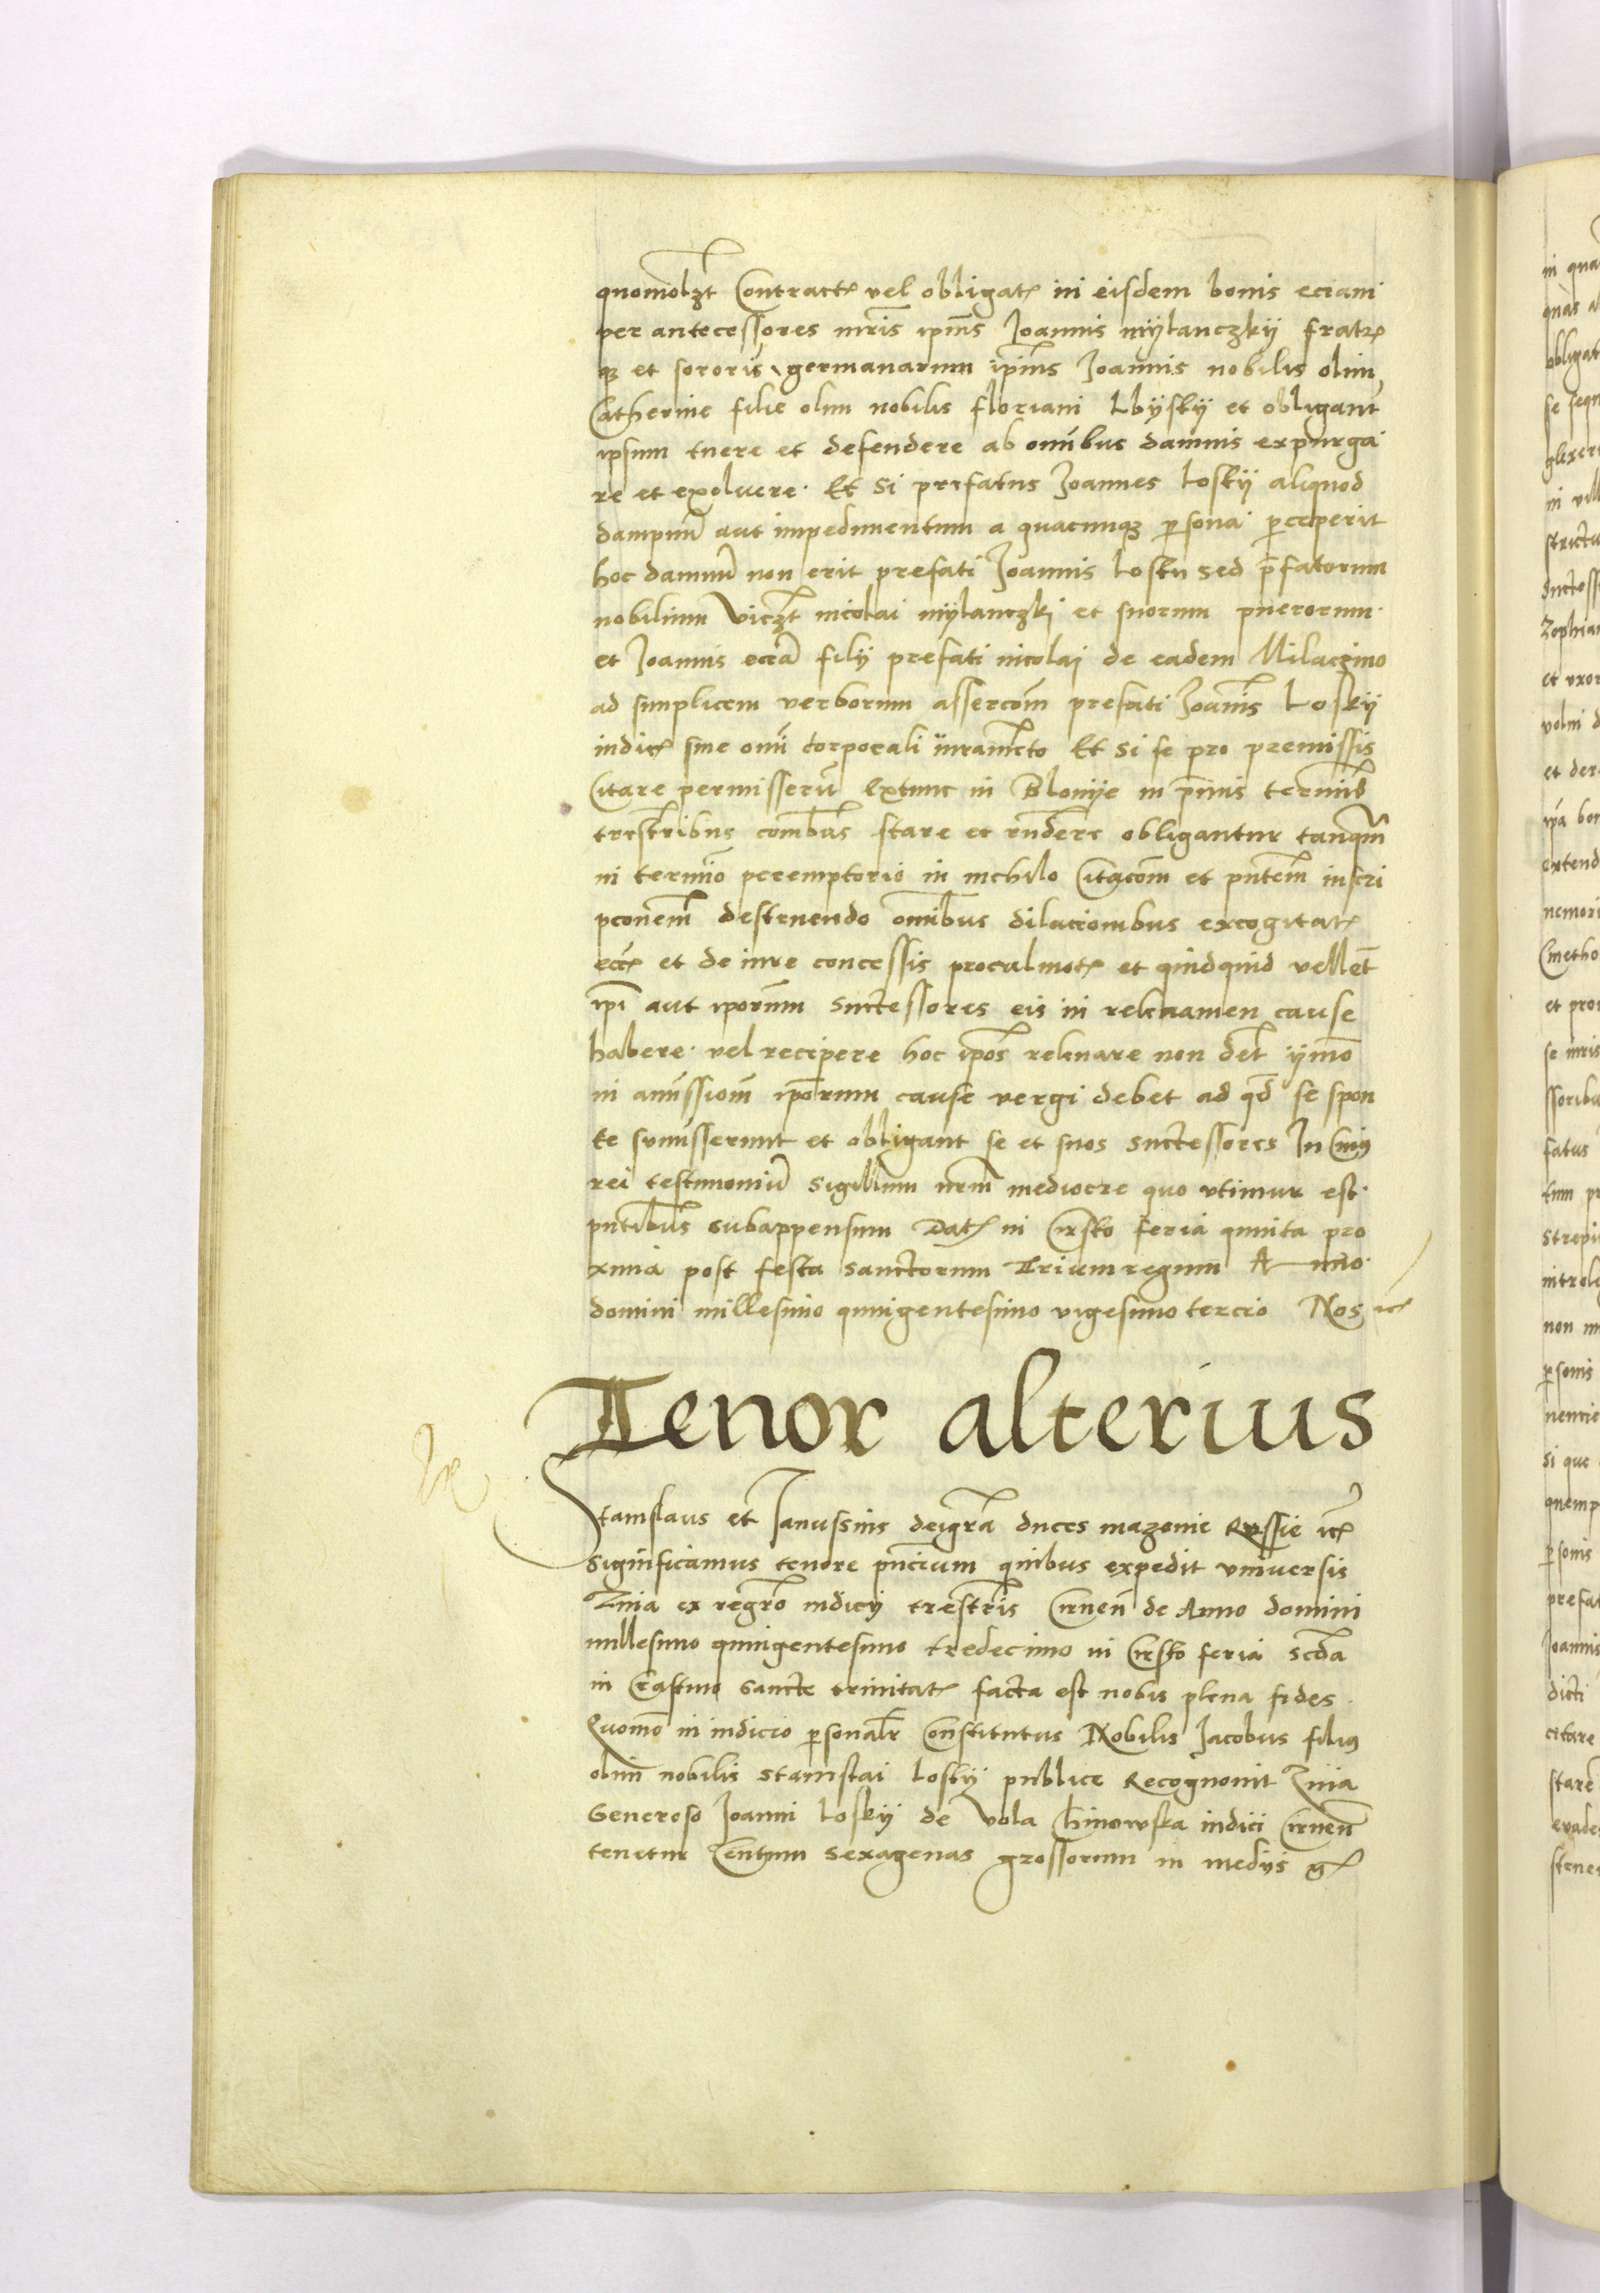 quomolzt Contract vel obligat in eisdem bonis eciam
per antecessores mris ipius Joannis mÿlanczkÿ fratz
qz et sororis germanarum ipius Joannis nobilis olim
Catherine filie olim nobilis floriani Lbÿskÿ et obligant
ipsum tuere et defendere ab omibus damnis expurga
re et exolvere. Et si prefatus Joannes Loskÿ aliquod
dampnu aut impedimentum a quacunqz psona pceperit
hoc damnu non erit prefati Joannis Losky sed pfatorum
nobilium viczt nicolai mÿlanczki et suorum puerorum.
et Joannis ecia filÿ prefati nicolai de eadem Milaczino
ad simplicem verborum assercom prefati Joanis Loskÿ
indict sine omi corporali iuramto Et si se pro premissis
Citare permisserit Extunc in Blonÿe in pimis termib
trestribus combus stare et rndere obligantur tanqm
in termio peremptorio in nichilo Citacom et pntem inscri
pconem destruendo omibus dilacionibus excogitat
ecc et de iure concessis proculmot et quidquid vellet
ipi aut iporum successores eis in relevamen cause
habere. vel recipere hoc ipos relevare non det ÿmo
in amissiom iporum cause vergi debet ad qd se spon
te summisserunt et obligant se et suos successores In Cuiq
rei testimoniu sigillum nrm mediocre quo utimur est.
pntibus subappensum Dat in Cirsko feria quinta pro
xima post festa sanctorum Triumregum Anno.
domini millesimo quingentesimo vigesimo tercio Nos itc
Tenor alterius
Stanislaus et Janussius deigra duces mazovie Russie itc
Significamus tenore pncium quibus expedit universis
Quia ex regro iudicÿ trestris Cirnen de Anno domini
millesimo quingentesimo tredecimo in Cirsko feria scda
in Crastino sancte trinitat facta est nobis plena fides.
Quomo in iudicio psonalr Constitutus Nobilis Jacobus filiq
olim nobilis stanislai Loskÿ publice Recognovit Quia
Generoso Joanni Loskÿ de Vola Chinowska iudici Cirnen
tenetur Centum sexagenas grossorum in medÿs g